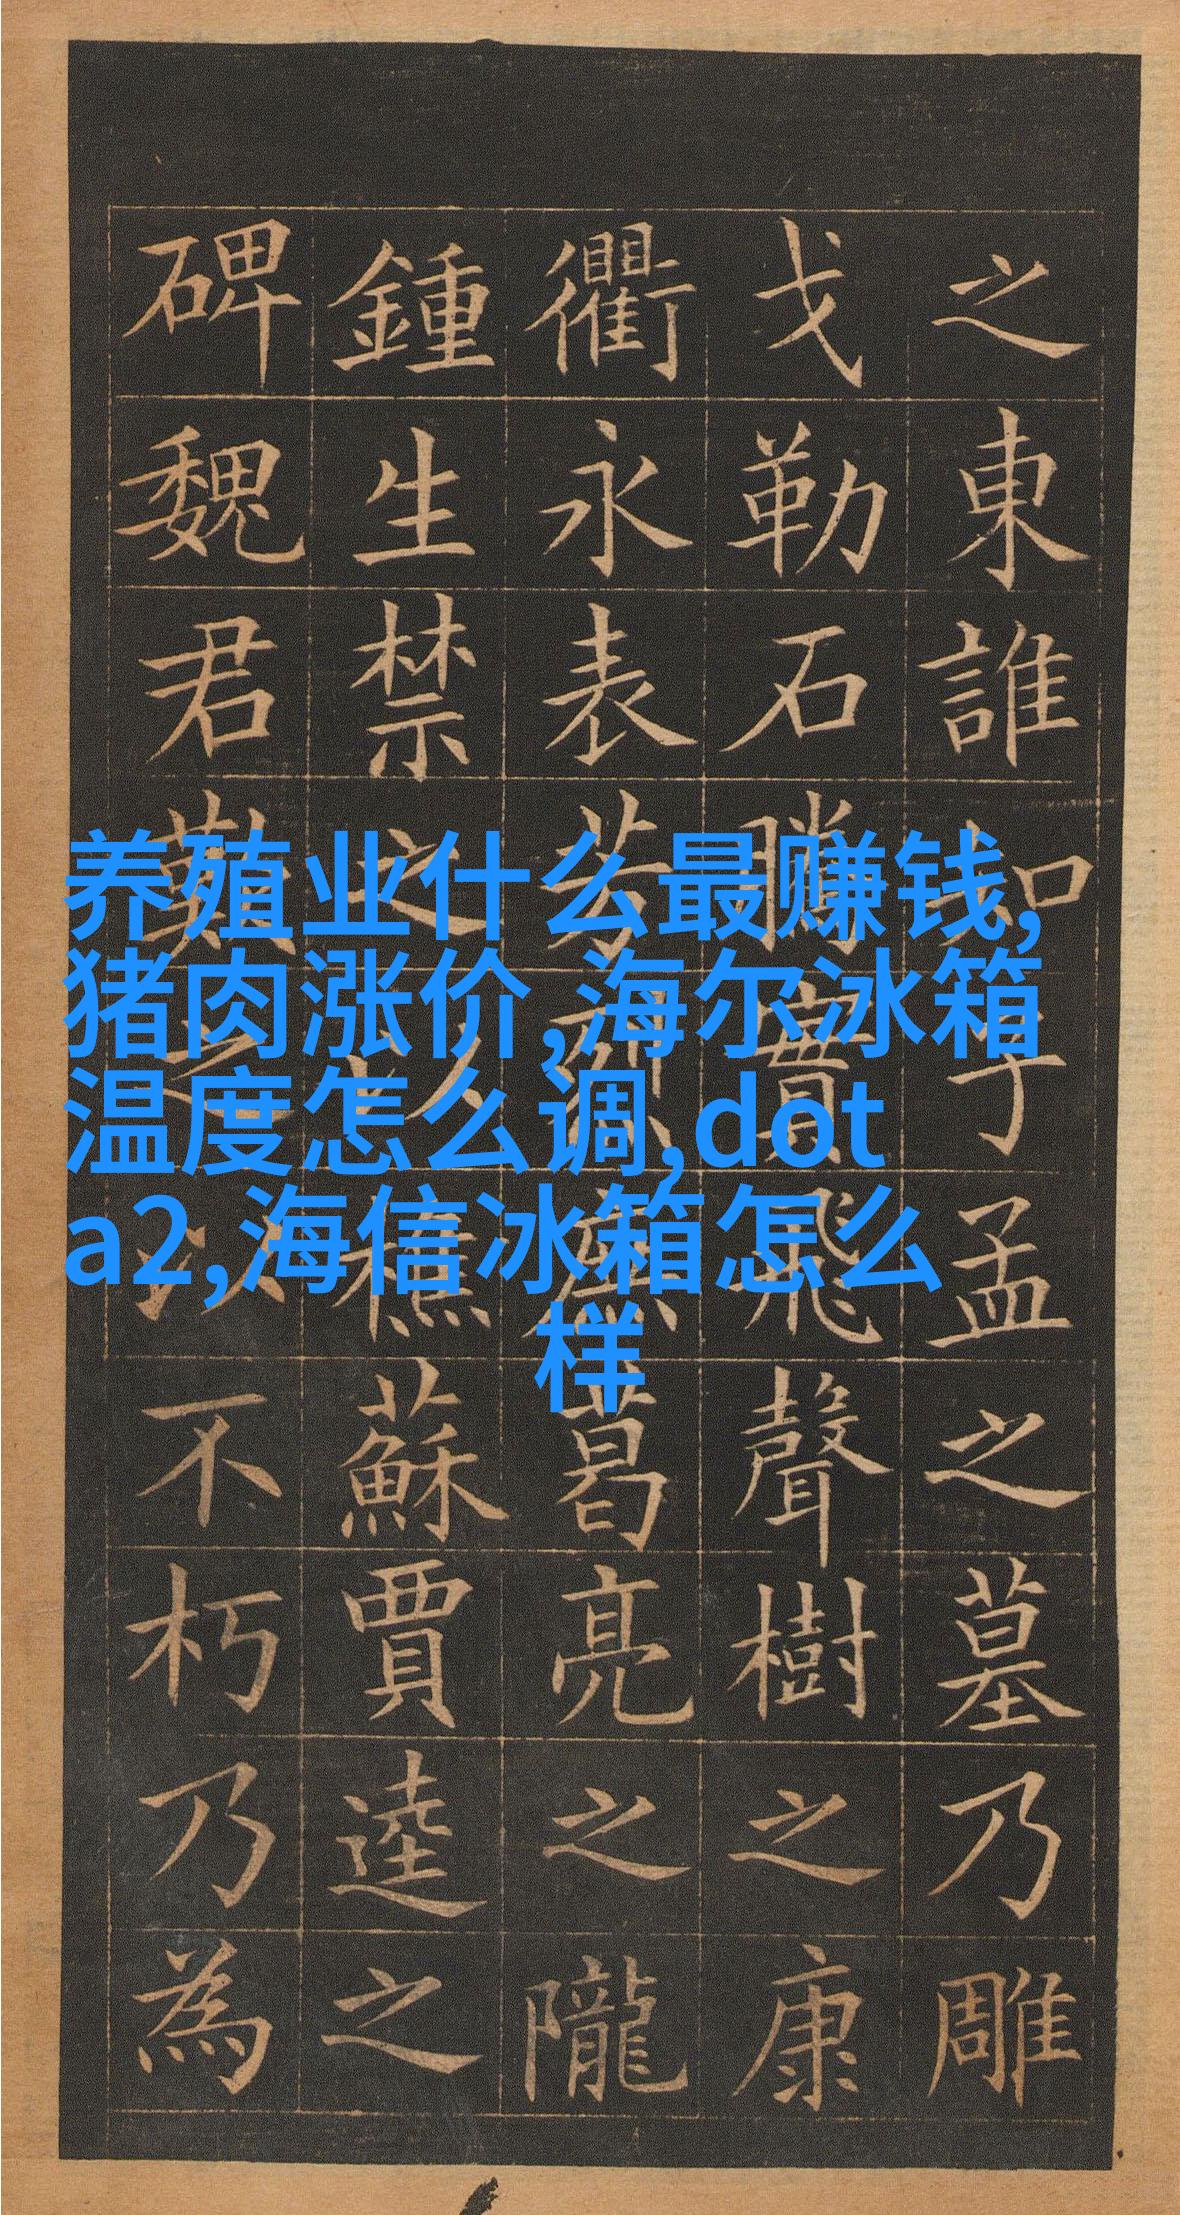 之東誰知子孟之墓乃雕
戈勒石騰實飛聲樹之康
衢永表芳烈庶葛亮之隴
鍾生禁之以樵蘇賈逵之
碑魏君之以不朽乃為
养殖业什么最赚钱,
猪肉涨价,海尔冰箱
温度怎么调,dot
a2,海信冰箱怎么
样